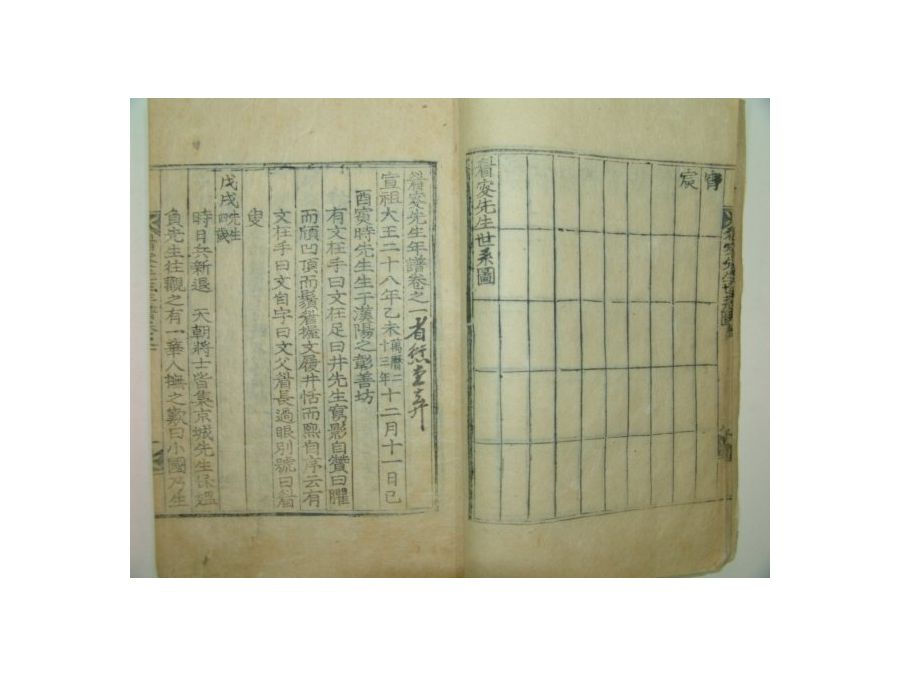 宸
睂叟先生世系圖
睂叟先生年譜卷之一
宣祖大王二十八年乙未萬曆二十三年十二月十一日己
酉寅時先生生于漢陽之彰善坊
有文在手曰文在足曰井先生寫影自贊曰臞
而頎凹頂而鬚睂握文履井恬而熙自序云有
文在手曰文自字曰文父睂長過眼別號曰睂
叟
戊戌先生四歲
時日兵新退 天朝將士皆集京城先生保媼
負先生往觀之有一華人撫之歎曰小國乃生